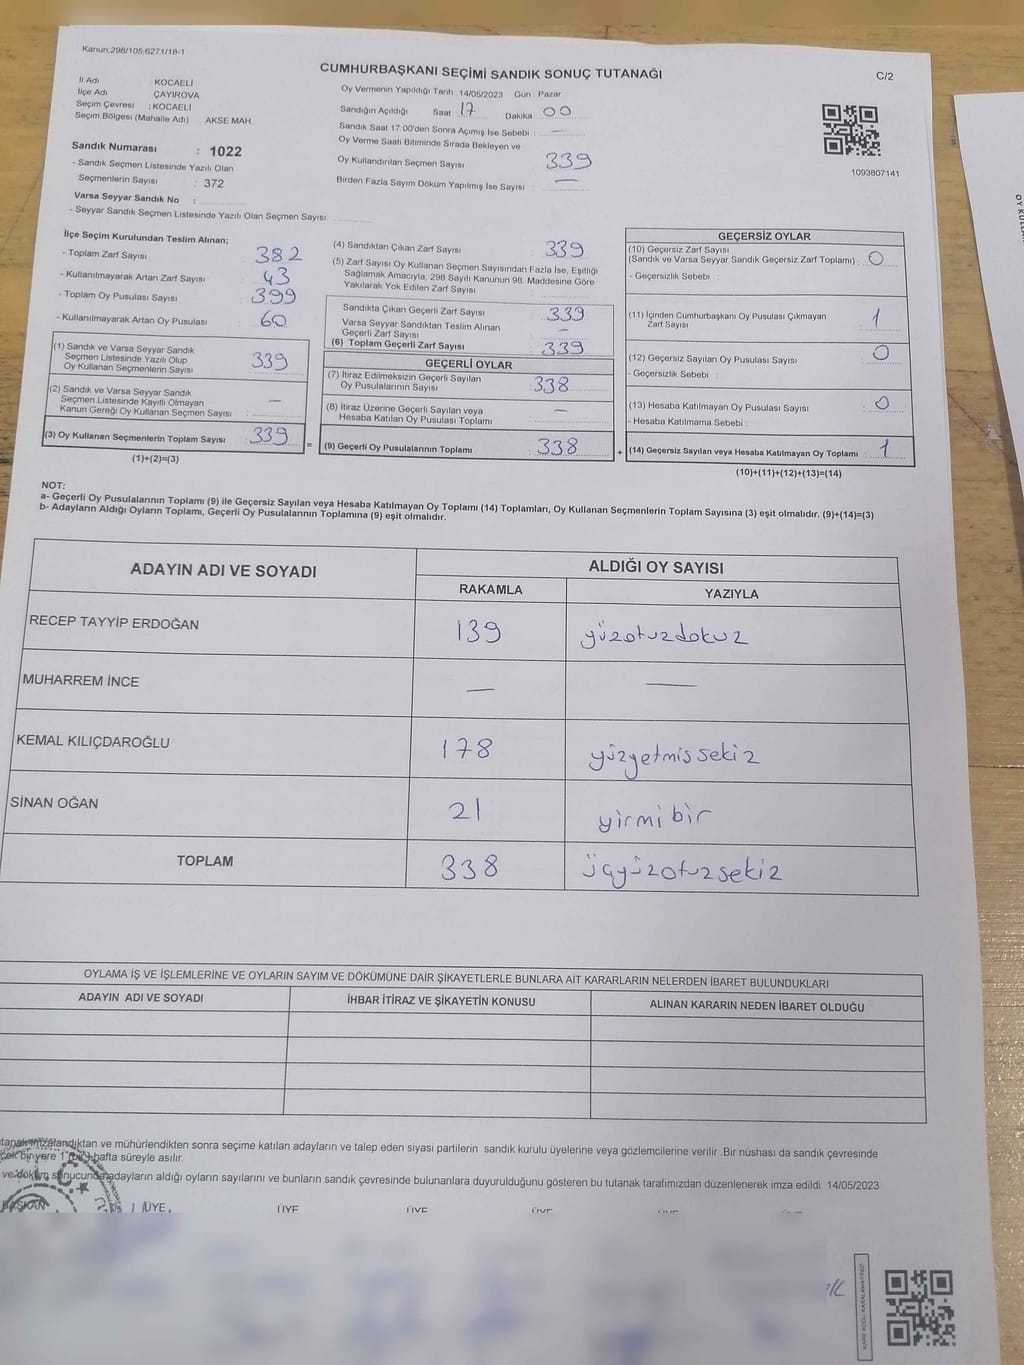 Kanun;298/105,6271/18-1
CUMHURBAŞKANI SEÇİMİ SANDIK SONUÇ TUTANAĞI
C/2
İl Adı : KOCAELİ
İlçe Adı : ÇAYIROVA
Seçim Çevresi : KOCAELİ
Seçim Bölgesi (Mahalle Adı) AKSE MAH.
Sandık Numarası : 1022
- Sandık Seçmen Listesinde Yazılı Olan
Seçmenlerin Sayısı : 372
Varsa Seyyar Sandık No :
- Seyyar Sandık Seçmen Listesinde Yazılı Olan Seçmen Sayısı:
Oy Vermenin Yapıldığı Tarih :14/05/2023 Gün : Pazar
Sandığın Açıldığı Saat 17 Dakika 00
Sandık Saat 17.00'den Sonra Açımış İse Sebebi : —
Oy Verme Saati Bitiminde Sırada Bekleyen ve
Oy Kullandırılan Seçmen Sayısı 339
Birden Fazla Sayım Döküm Yapılmış İse Sayısı : —
1093807141
İlçe Seçim Kurulundan Teslim Alınan;
- Toplam Zarf Sayısı : 382
- Kullanılmayarak Artan Zarf Sayısı : 43
- Toplam Oy Pusulası Sayısı : 399
- Kullanılmayarak Artan Oy Pusulası : 60
(1) Sandık ve Varsa Seyyar Sandık
Seçmen Listesinde Yazılı Olup
Oy Kullanan Seçmenlerin Sayısı : 339
(2) Sandık ve Varsa Seyyar Sandık
Seçmen Listesinde Kayıtlı Olmayan
Kanun Gereği Oy Kullanan Seçmen Sayısı : —
(3) Oy Kullanan Seçmenlerin Toplam Sayısı : 339 =
(1)+(2)=(3)
(4) Sandıktan Çıkan Zarf Sayısı : 339
(5) Zarf Sayısı Oy Kullanan Seçmen Sayısından Fazla İse, Eşitliği
Sağlamak Amacıyla, 298 Sayılı Kanunun 98. Maddesine Göre
Yakılarak Yok Edilen Zarf Sayısı :
Sandıkta Çıkan Geçerli Zarf Sayısı : 339
Varsa Seyyar Sandıktan Teslim Alınan
Geçerli Zarf Sayısı : —
(6) Toplam Geçerli Zarf Sayısı : 339
GEÇERLİ OYLAR
(7) İtiraz Edilmeksizin Geçerli Sayılan
Oy Pusulalarının Sayısı : 338
(8) İtiraz Üzerine Geçerli Sayılan veya
Hesaba Katılan Oy Pusulası Toplamı : —
(9) Geçerli Oy Pusulalarının Toplamı : 338 +
GEÇERSİZ OYLAR
(10) Geçersiz Zarf Sayısı
(Sandık ve Varsa Seyyar Sandık Geçersiz Zarf Toplamı) : 0
- Geçersizlik Sebebi :
(11) İçinden Cumhurbaşkanı Oy Pusulası Çıkmayan
Zarf Sayısı : 1
(12) Geçersiz Sayılan Oy Pusulası Sayısı : 0
- Geçersizlik Sebebi :
(13) Hesaba Katılmayan Oy Pusulası Sayısı : 0
- Hesaba Katılmama Sebebi :
(14) Geçersiz Sayılan veya Hesaba Katılmayan Oy Toplamı : 1
(10)+(11)+(12)+(13)=(14)
NOT:
a- Geçerli Oy Pusulalarının Toplamı (9) ile Geçersiz Sayılan veya Hesaba Katılmayan Oy Toplamı (14) Toplamları, Oy Kullanan Seçmenlerin Toplam Sayısına (3) eşit olmalıdır. (9)+(14)=(3)
b- Adayların Aldığı Oyların Toplamı, Geçerli Oy Pusulalarının Toplamına (9) eşit olmalıdır.
ADAYIN ADI VE SOYADI
ALDIĞI OY SAYISI
RAKAMLA YAZIYLA
RECEP TAYYİP ERDOĞAN 139 yüzotuzdokuz
MUHARREM İNCE — —
KEMAL KILIÇDAROĞLU 178 yüzyetmişsekiz
SİNAN OĞAN 21 yirmi bir
TOPLAM 338 üçyüzotuzsekiz
OYLAMA İŞ VE İŞLEMLERİNE VE OYLARIN SAYIM VE DÖKÜMÜNE DAİR ŞİKAYETLERLE BUNLARA AİT KARARLARIN NELERDEN İBARET BULUNDUKLARI
ADAYIN ADI VE SOYADI İHBAR İTİRAZ VE ŞİKAYETİN KONUSU ALINAN KARARIN NEDEN İBARET OLDUĞU
tanak imzalandıktan ve mühürlendikten sonra seçime katılan adayların ve talep eden siyasi partilerin sandık kurulu üyelerine veya gözlemcilerine verilir .Bir nüshası da sandık çevresinde
bir yere 1 hafta süreyle asılır.
ve döküm sonucunda adayların aldığı oyların sayılarını ve bunların sandık çevresinde bulunanlara duyurulduğunu gösteren bu tutanak tarafımızdan düzenlenerek imza edildi 14/05/2023
BAŞKAN ÜYE ÜYE ÜYE ÜYE